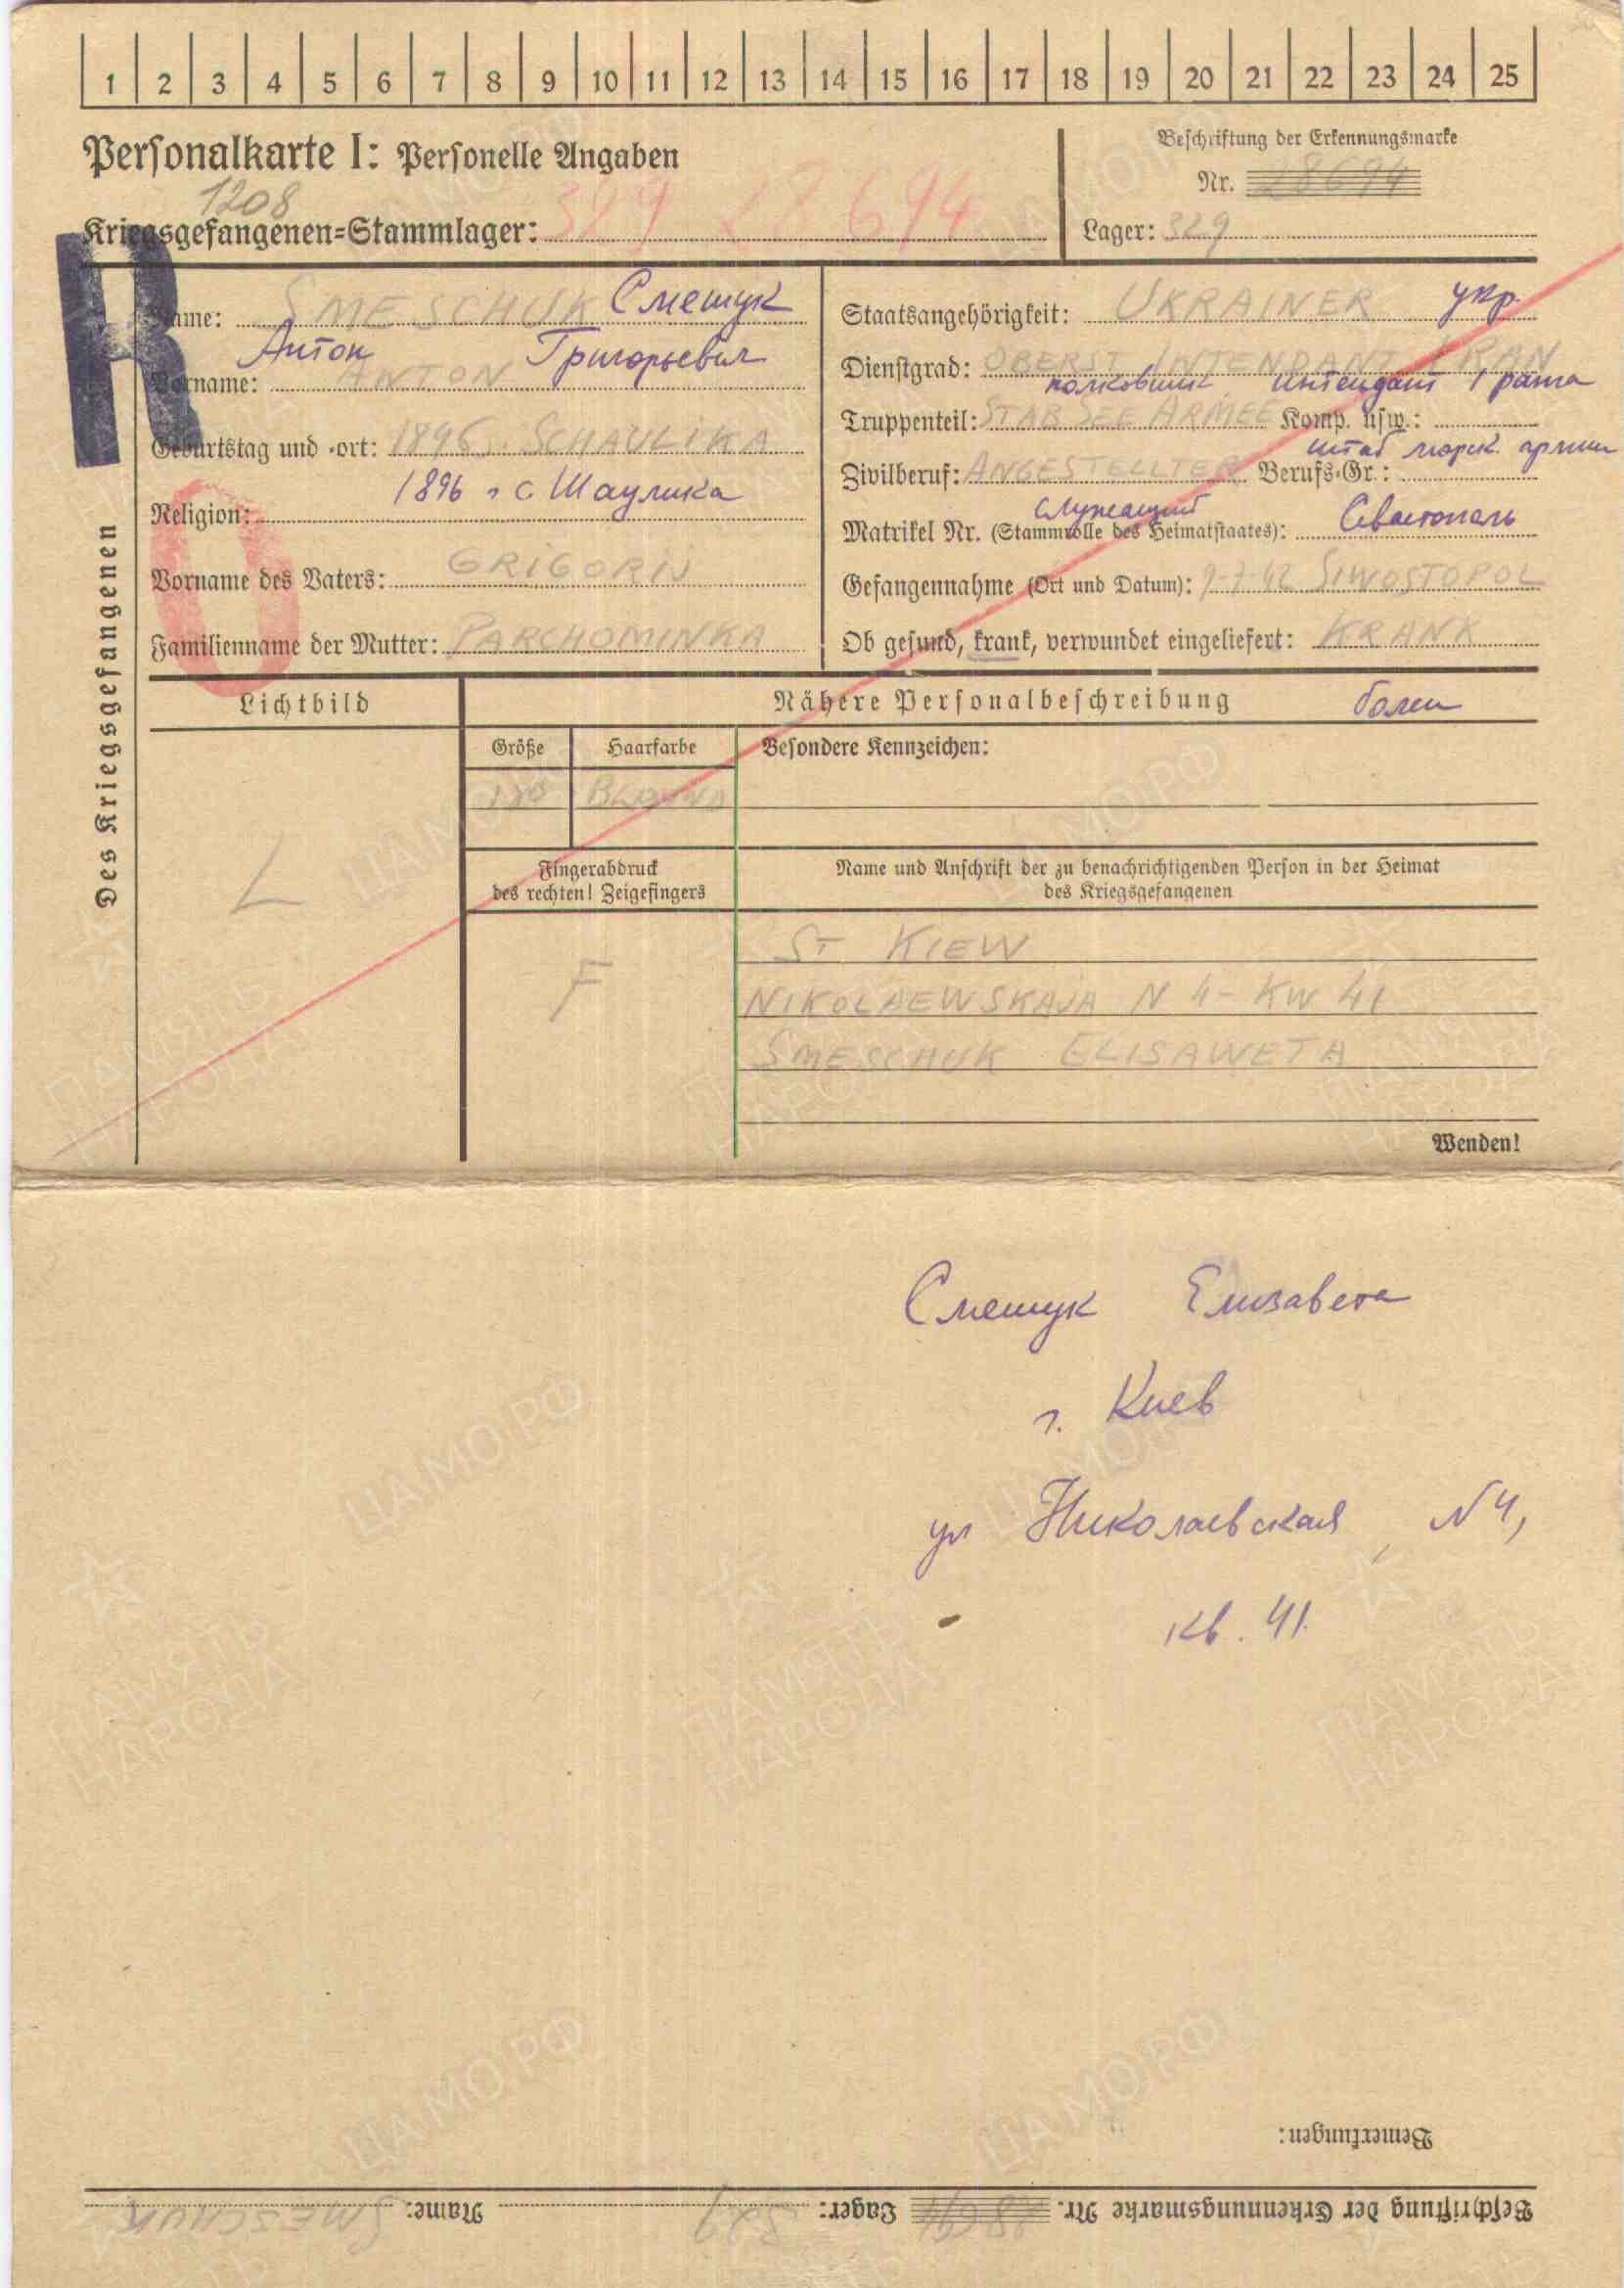 1 2 3 4 5 6 7 8 9 10 11 12 13 14 15 16 17 18 19 20 21 22 23 24 25
Personalkarte I: Personelle Angaben
Beschriftung der Erkennungsmarke
Nr. 28694
1208
Kriegsgefangenen=Stammlager: 329 28694
Lager: 329
R
Name: SMESCHUK Смешук
Антон Григорьевич
Vorname: ANTON
Geburtstag und -ort: 1896 SCHAULIKA
1896 г с Шаулика
Religion:
Vorname des Vaters: GRIGORIJ
Familienname der Mutter: PARCHOMINKA
Staatsangehörigkeit: UKRAINER укр.
Dienstgrad: OBERST INTENDANT 1 RAN
полковник интендант 1 ранга
Truppenteil: STAB SEE ARMEE Komp. usw.:
штаб морск. армии
Zivilberuf: ANGESTELLTER Berufs-Gr.:
служащий
Matrikel Nr. (Stammrolle des Heimatstaates): Севастополь
Gefangennahme (Ort und Datum): 9-7-42 SIWOSTOPOL
Ob gesund, krank, verwundet eingeliefert: KRANK
Des Kriegsgefangenen
Lichtbild
Nähere Personalbeschreibung болен
Größe Haarfarbe Besondere Kennzeichen:
L
Fingerabdruck
des rechten! Zeigefingers
F
Name und Anschrift der zu benachrichtigenden Person in der Heimat
des Kriegsgefangenen
ST KIEW
NIKOLAEWSKAJA N 4 - KW 41
SMESCHUK ELISAWETA
Wenden!
Смешук Елизавета
г. Киев
ул Николаевская, N 4,
кв. 41.
Bemerkungen:
Beschriftung der Erkennungsmarke Nr. 28694 Lager: 329 Name: SMESCHUK
ЦАМО.РФ
ПАМЯТЬ
НАРОДА